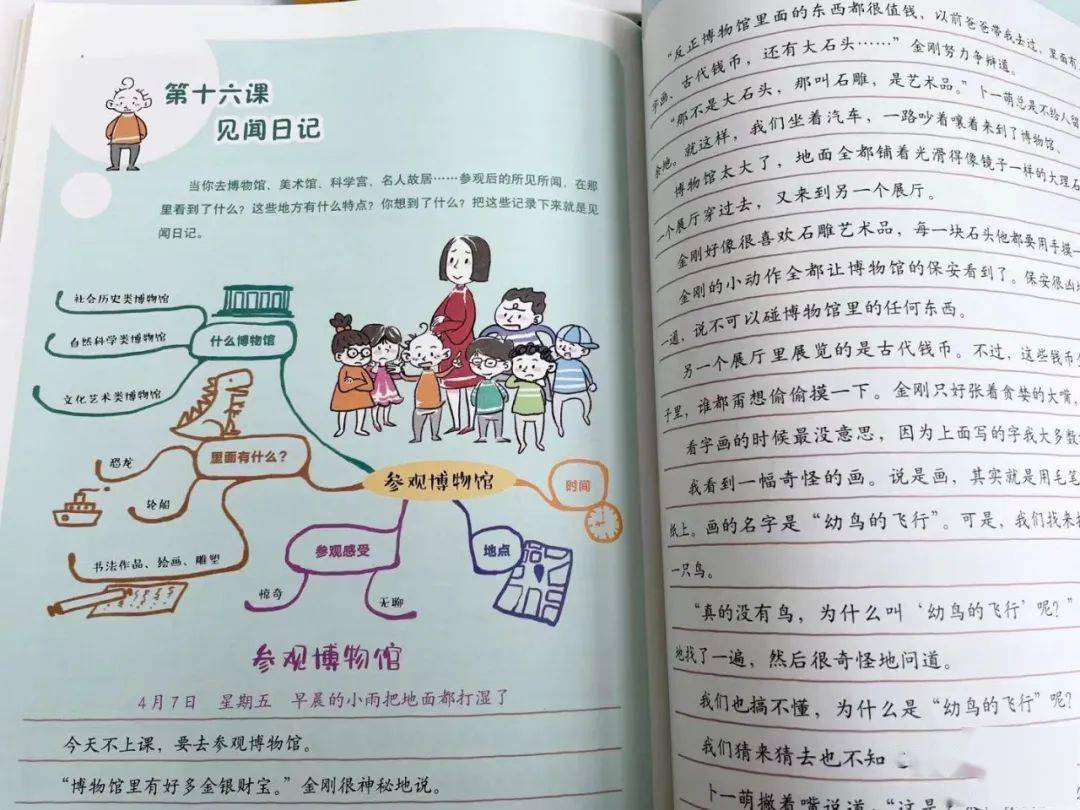 第十六课
见闻日记
当你去博物馆、美术馆、科学宫、名人故居……参观后的所见所闻，在那
里看到了什么？这些地方有什么特点？你想到了什么？把这些记录下来就是见
闻日记。
社会历史类博物馆
自然科学类博物馆
文化艺术类博物馆
什么博物馆
里面有什么？
恐龙
轮船
书法作品、绘画、雕塑
参观博物馆
时间
参观感受
地点
惊奇
无聊
参观博物馆
4月7日 星期五 早晨的小雨把地面都打湿了
今天不上课，要去参观博物馆。
“博物馆里有好多金银财宝。”金刚很神秘地说。
“反正博物馆里面的东西都很值钱，以前爸爸带我去过，里面有
字画、古代钱币，还有大石头……”金刚努力争辩道。
“那不是大石头，那叫石雕，是艺术品。”卜一萌总是不给人留
余地。就这样，我们坐着汽车，一路吵着嚷着来到了博物馆、
博物馆太大了，地面全都铺着光滑得像镜子一样的大理石
一个展厅穿过去，又来到另一个展厅。
金刚好像很喜欢石雕艺术品，每一块石头他都要用手摸一
金刚的小动作全都让博物馆的保安看到了。保安很凶地
一道，说不可以碰博物馆里的任何东西。
另一个展厅里展览的是古代钱币。不过，这些钱币
子里，谁都甭想偷偷摸一下。金刚只好张着贪婪的大嘴，
看字画的时候最没意思，因为上面写的字我大多数
我看到一幅奇怪的画。说是画，其实就是用毛笔
纸上。画的名字是“幼鸟的飞行”。可是，我们找来
一只鸟。
“真的没有鸟，为什么叫‘幼鸟的飞行’呢？”
地找了一遍，然后很奇怪地问道。
我们也搞不懂，为什么是“幼鸟的飞行”呢？
我们猜来猜去也不知
卜一萌撇着嘴说道：“这是